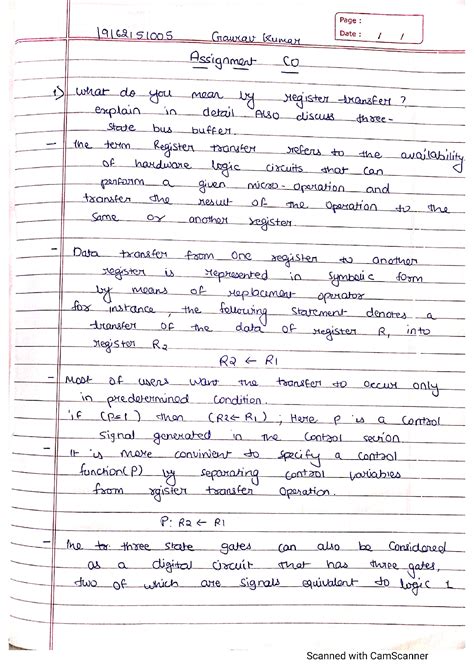 Page :
Date : / /
19162151005 Gaurav Kumar
Assignment CO
1) What do you mean by register transfer ?
explain in detail Also discuss three-
state bus buffer.
- The term Register transfer refers to the availability
of hardware logic circuits that can
perform a given micro-operation and
transfer the result of the operation to the
same or another register.
- Data transfer from one register to another
register is represented in symbolic form
by means of replacment operator
for instance, the following statement denotes a
transfer of the data of register R, into
register R2
R2 ← R1
- Most of users want the transfer to occur only
in predetermined condition.
if (P=1) then (R2← R1) ; Here P is a control
signal generated in the control section.
- It is more convinient to specify a control
function(P) by separating control variables
from rgister transfer operation.
P: R2 ← R1
- The three state gates can also be considered
as a digital circuit that has three gates,
two of which are signals equivalent to logic 1
Scanned with CamScanner